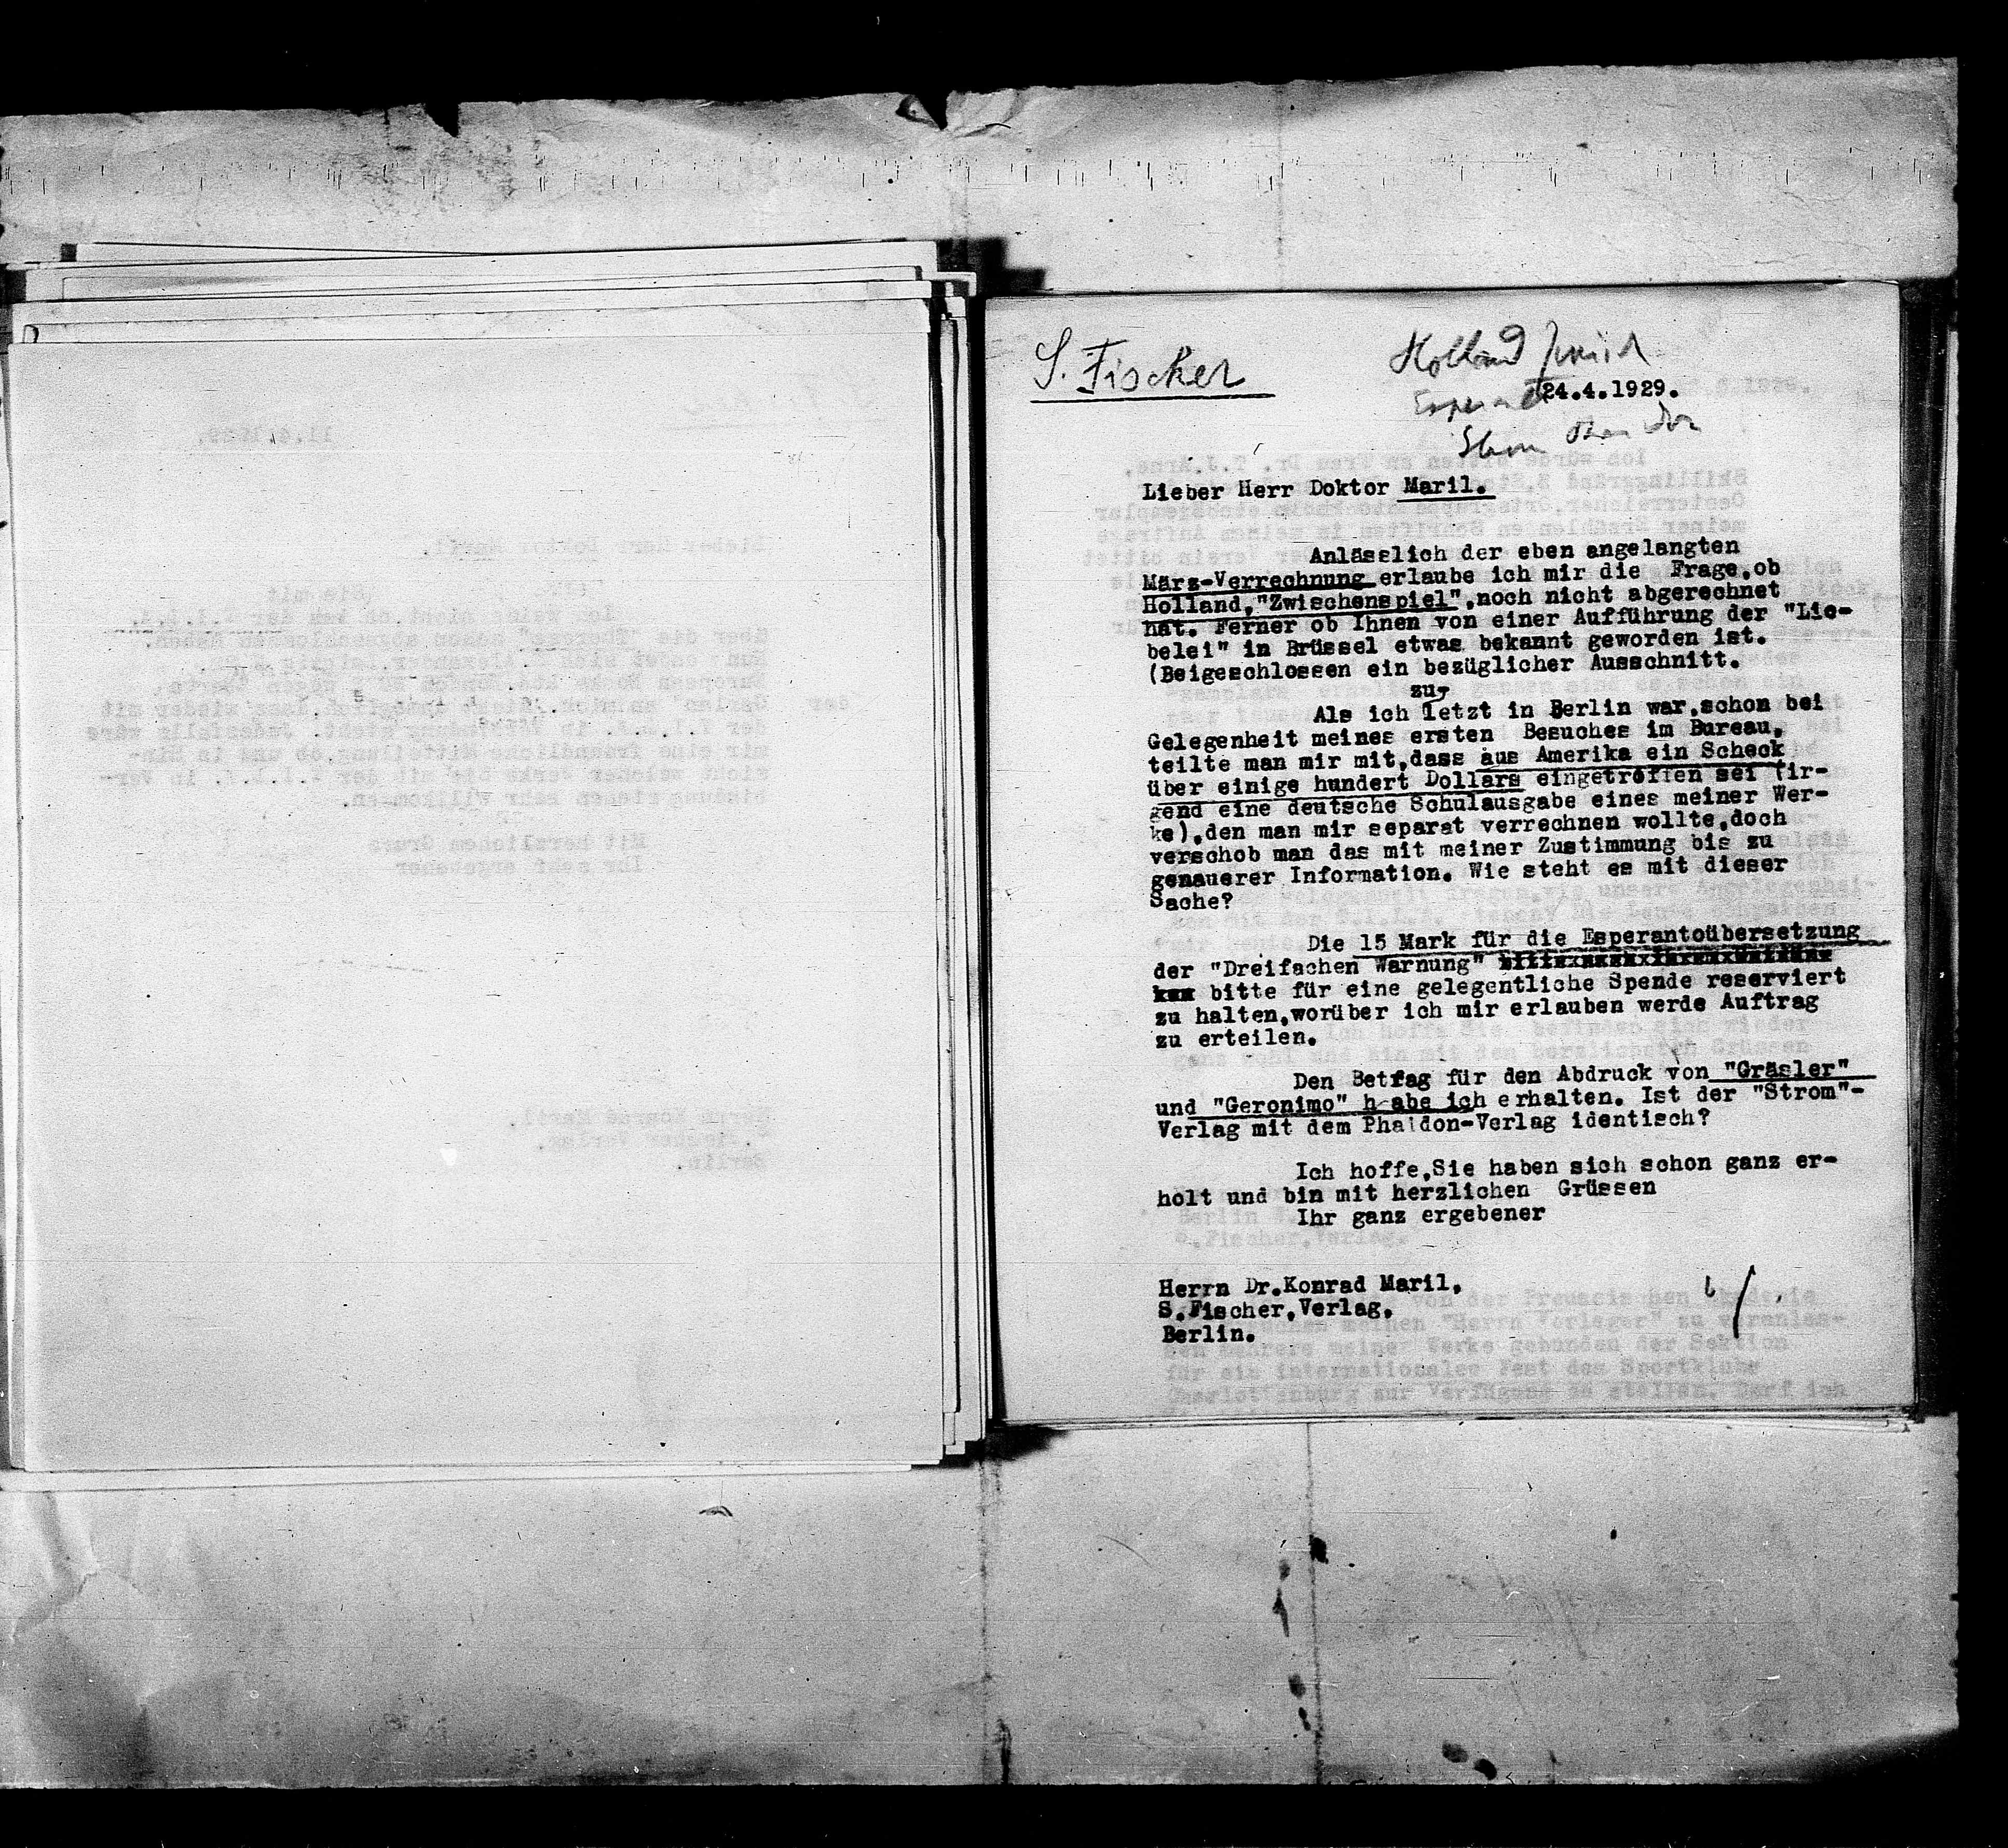 S. Fischer
Holland
24.4.1929.
Lieber Herr Doktor Maril.
Anlässlich der eben angelangten
März-Verrechnung erlaube ich mir die Frage,ob
Holland,"Zwischenspiel",noch nicht abgerechnet
hat. Ferner ob Ihnen von einer Aufführung der "Lie-
belei" in Brüssel etwas bekannt geworden ist.
(Beigeschlossen ein bezüglicher Ausschnitt.
zu-
Als ich letzt in Berlin war,schon bei
Gelegenheit meines ersten Besuches im Bureau,
teilte man mir mit,dass aus Amerika ein Scheck
über einige hundert Dollars eingetroffen sei (ir-
gend eine deutsche Schulausgabe eines meiner Wer-
ke),den man mir separat verrechnen wollte,doch
verschob man das mit meiner Zustimmung bis zu
genauerer Information. Wie steht es mit dieser
Sache?
Die 15 Mark für die Esperantoübersetzung
der "Dreifachen Warnung"
bitte für eine gelegentliche Spende reserviert
zu halten,worüber ich mir erlauben werde Auftrag
zu erteilen.
Den Betrag für den Abdruck von "Gräsler"
und "Geronimo" habe ich erhalten. Ist der "Strom"-
Verlag mit dem Phaidon-Verlag identisch?
Ich hoffe,Sie haben sich schon ganz er-
holt und bin mit herzlichen Grüssen
Ihr ganz ergebener
Herrn Dr.Konrad Maril,
S.Fischer,Verlag,
Berlin.